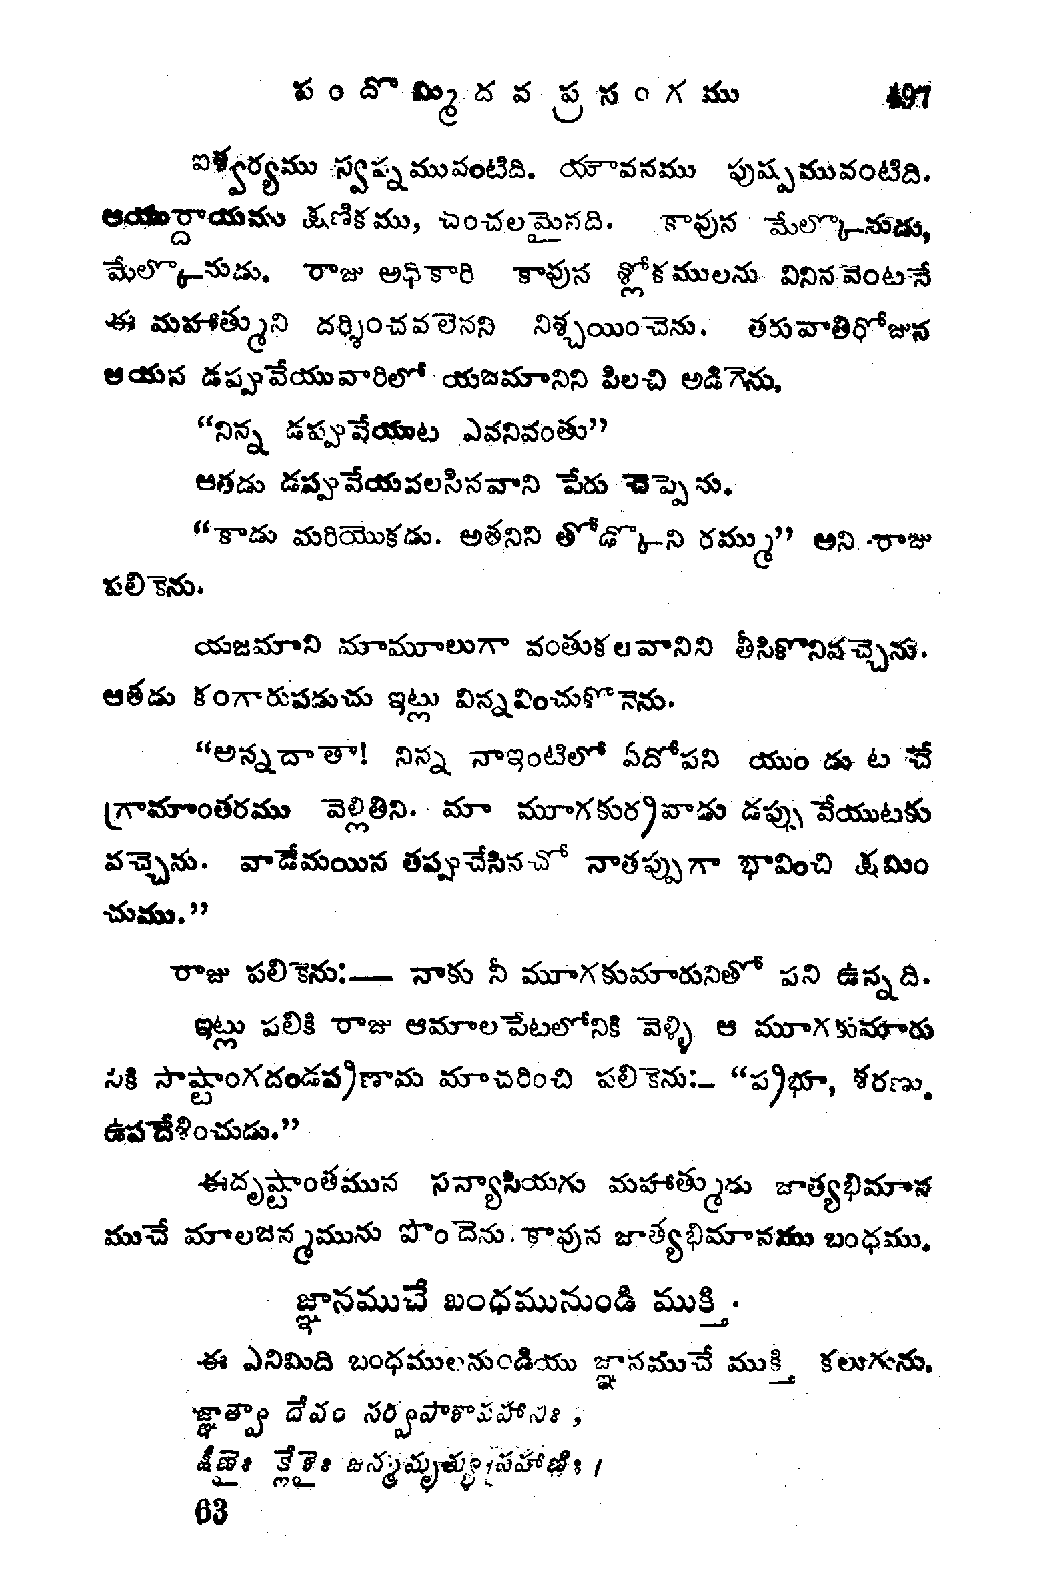 పందొమ్మిదవ ప్రసంగము 497
ఐశ్వర్యము స్వప్నమువంటిది. యౌవనము పుష్పమువంటిది.
ఆయుర్దాయము క్షణికము, చంచలమైనది. కావున మేల్కొనుడు,
మేల్కొనుడు. రాజు అధికారి కావున శ్లోకములను వినినవెంటనే
ఈ మహాత్ముని దర్శించవలెనని నిశ్చయించెను. తరువాతిరోజున
ఆయన డప్పువేయువారిలో యజమానిని పిలచి అడిగెను.
“నిన్న డప్పువేయుట ఎవనివంతు”
ఆతడు డప్పువేయవలసినవాని పేరు చెప్పెను.
“కాదు మరియొకడు. అతనిని తోడ్కొని రమ్ము” అని రాజు
పలికెను.
యజమాని మామూలుగా వంతుకలవానిని తీసికొనివచ్చెను.
ఆతడు కంగారుపడుచు ఇట్లు విన్నవించుకొనెను.
“అన్నదాతా! నిన్న నాఇంటిలో ఏదోపని యుండుటచే
గ్రామాంతరము వెల్లితిని. మా మూగకుర్రవాడు డప్పు వేయుటకు
వచ్చెను. వాడేమయిన తప్పుచేసినచో నాతప్పుగా భావించి క్షమిం
చుము.”
రాజు పలికెను:— నాకు నీ మూగకుమారునితో పని ఉన్నది.
ఇట్లు పలికి రాజు ఆమాలపేటలోనికి వెళ్ళి ఆ మూగకుమారు
నికి సాష్టాంగదండప్రణామ మాచరించి పలికెను:— “ప్రభూ, శరణు.
ఉపదేశించుడు.”
ఈదృష్టాంతమున సన్యాసియగు మహాత్ముడు జాత్యభిమాన
ముచే మాలజన్మమును పొందెను. కావున జాత్యభిమానము బంధము.
జ్ఞానముచే బంధమునుండి ముక్తి.
ఈ ఎనిమిది బంధములనుండియు జ్ఞానముచే ముక్తి కలుగును.
జ్ఞాత్వా దేవం సర్వపాశాపహానిః ,
క్షీణైః క్లేశైః జన్మమృత్యుప్రహాణిః ।
63